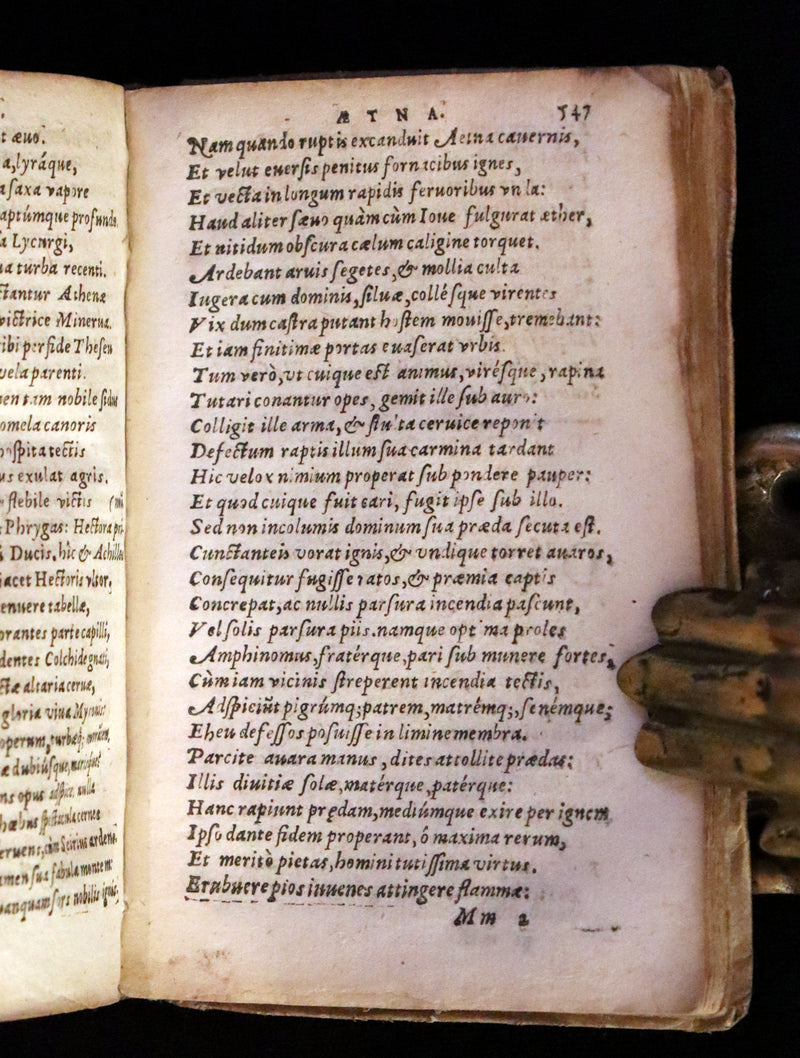 t æuo.
a, lyráque,
a saxa vapore
aptúmque profundo
a Lycurgi,
na turba recenti.
ctantur Athenæ
victrice Minerua.
ibi perfide Theseu
vela parenti.
nobile sidus
omela canoris
hospita tectis
us exulat agris.
flebile victis
Phrygas: Hectora
Ducis. hîc & Achilles
iacet Hectoris vltor.
enuere tabellæ,
orantes parte capilli,
dentes Colchide gnati,
ctæ altaria ceruæ,
gloria viua Myronis
operum, turbæq;
æ dubiúsque,
ns opus
men sua fabula montem
anquam sors nobilis ignis,
ÆTNA. 547
Nam quando ruptis excanduit Aetna cauernis,
Et velut euersis penitus fornacibus ignes,
Et vecta in longum rapidis feruoribus vnda:
Haud aliter sæuo quàm cùm Ioue fulgurat æther,
Et nitidum obscura cælum caligine torquet.
Ardebant aruis segetes, & mollia culta
Iugera cum dominis, siluæ, collésque virentes
Vix dum castra putant hostem mouisse, tremebant:
Et iam finitimæ portas euaserat vrbis.
Tum verò, vt cuique est animus, virésque, rapina
Tutari conantur opes, gemit ille sub auro:
Colligit ille arma, & stulta ceruice reponit
Defectum raptis illum sua carmina tardant
Hic velox nimium properat sub pondere pauper:
Et quod cuique fuit cari, fugit ipse sub illo.
Sed non incolumis dominum sua præda secuta est.
Cunctanteis vorat ignis, & vndique torret auaros,
Consequitur fugisse ratos, & præmia captis
Concrepat, ac nullis parsura incendia pascunt,
Vel solis parsura piis. namque optima proles
Amphinomus, fratérque, pari sub munere fortes,
Cùm iam vicinis streperent incendia tectis,
Adspiciūt pigrúmq; patrem, matrémq;, senémque;
Eheu defessos posuisse in limine membra.
Parcite auara manus, dites attollite prædas:
Illis diuitiæ solæ, matérque, patérque:
Hanc rapiunt prędam, mediúmque exire per ignem
Ipso dante fidem properant, ô maxima rerum,
Et meritò pietas, homini tutissima virtus.
Erubuere pios iuuenes attingere flammæ:
Mm 2